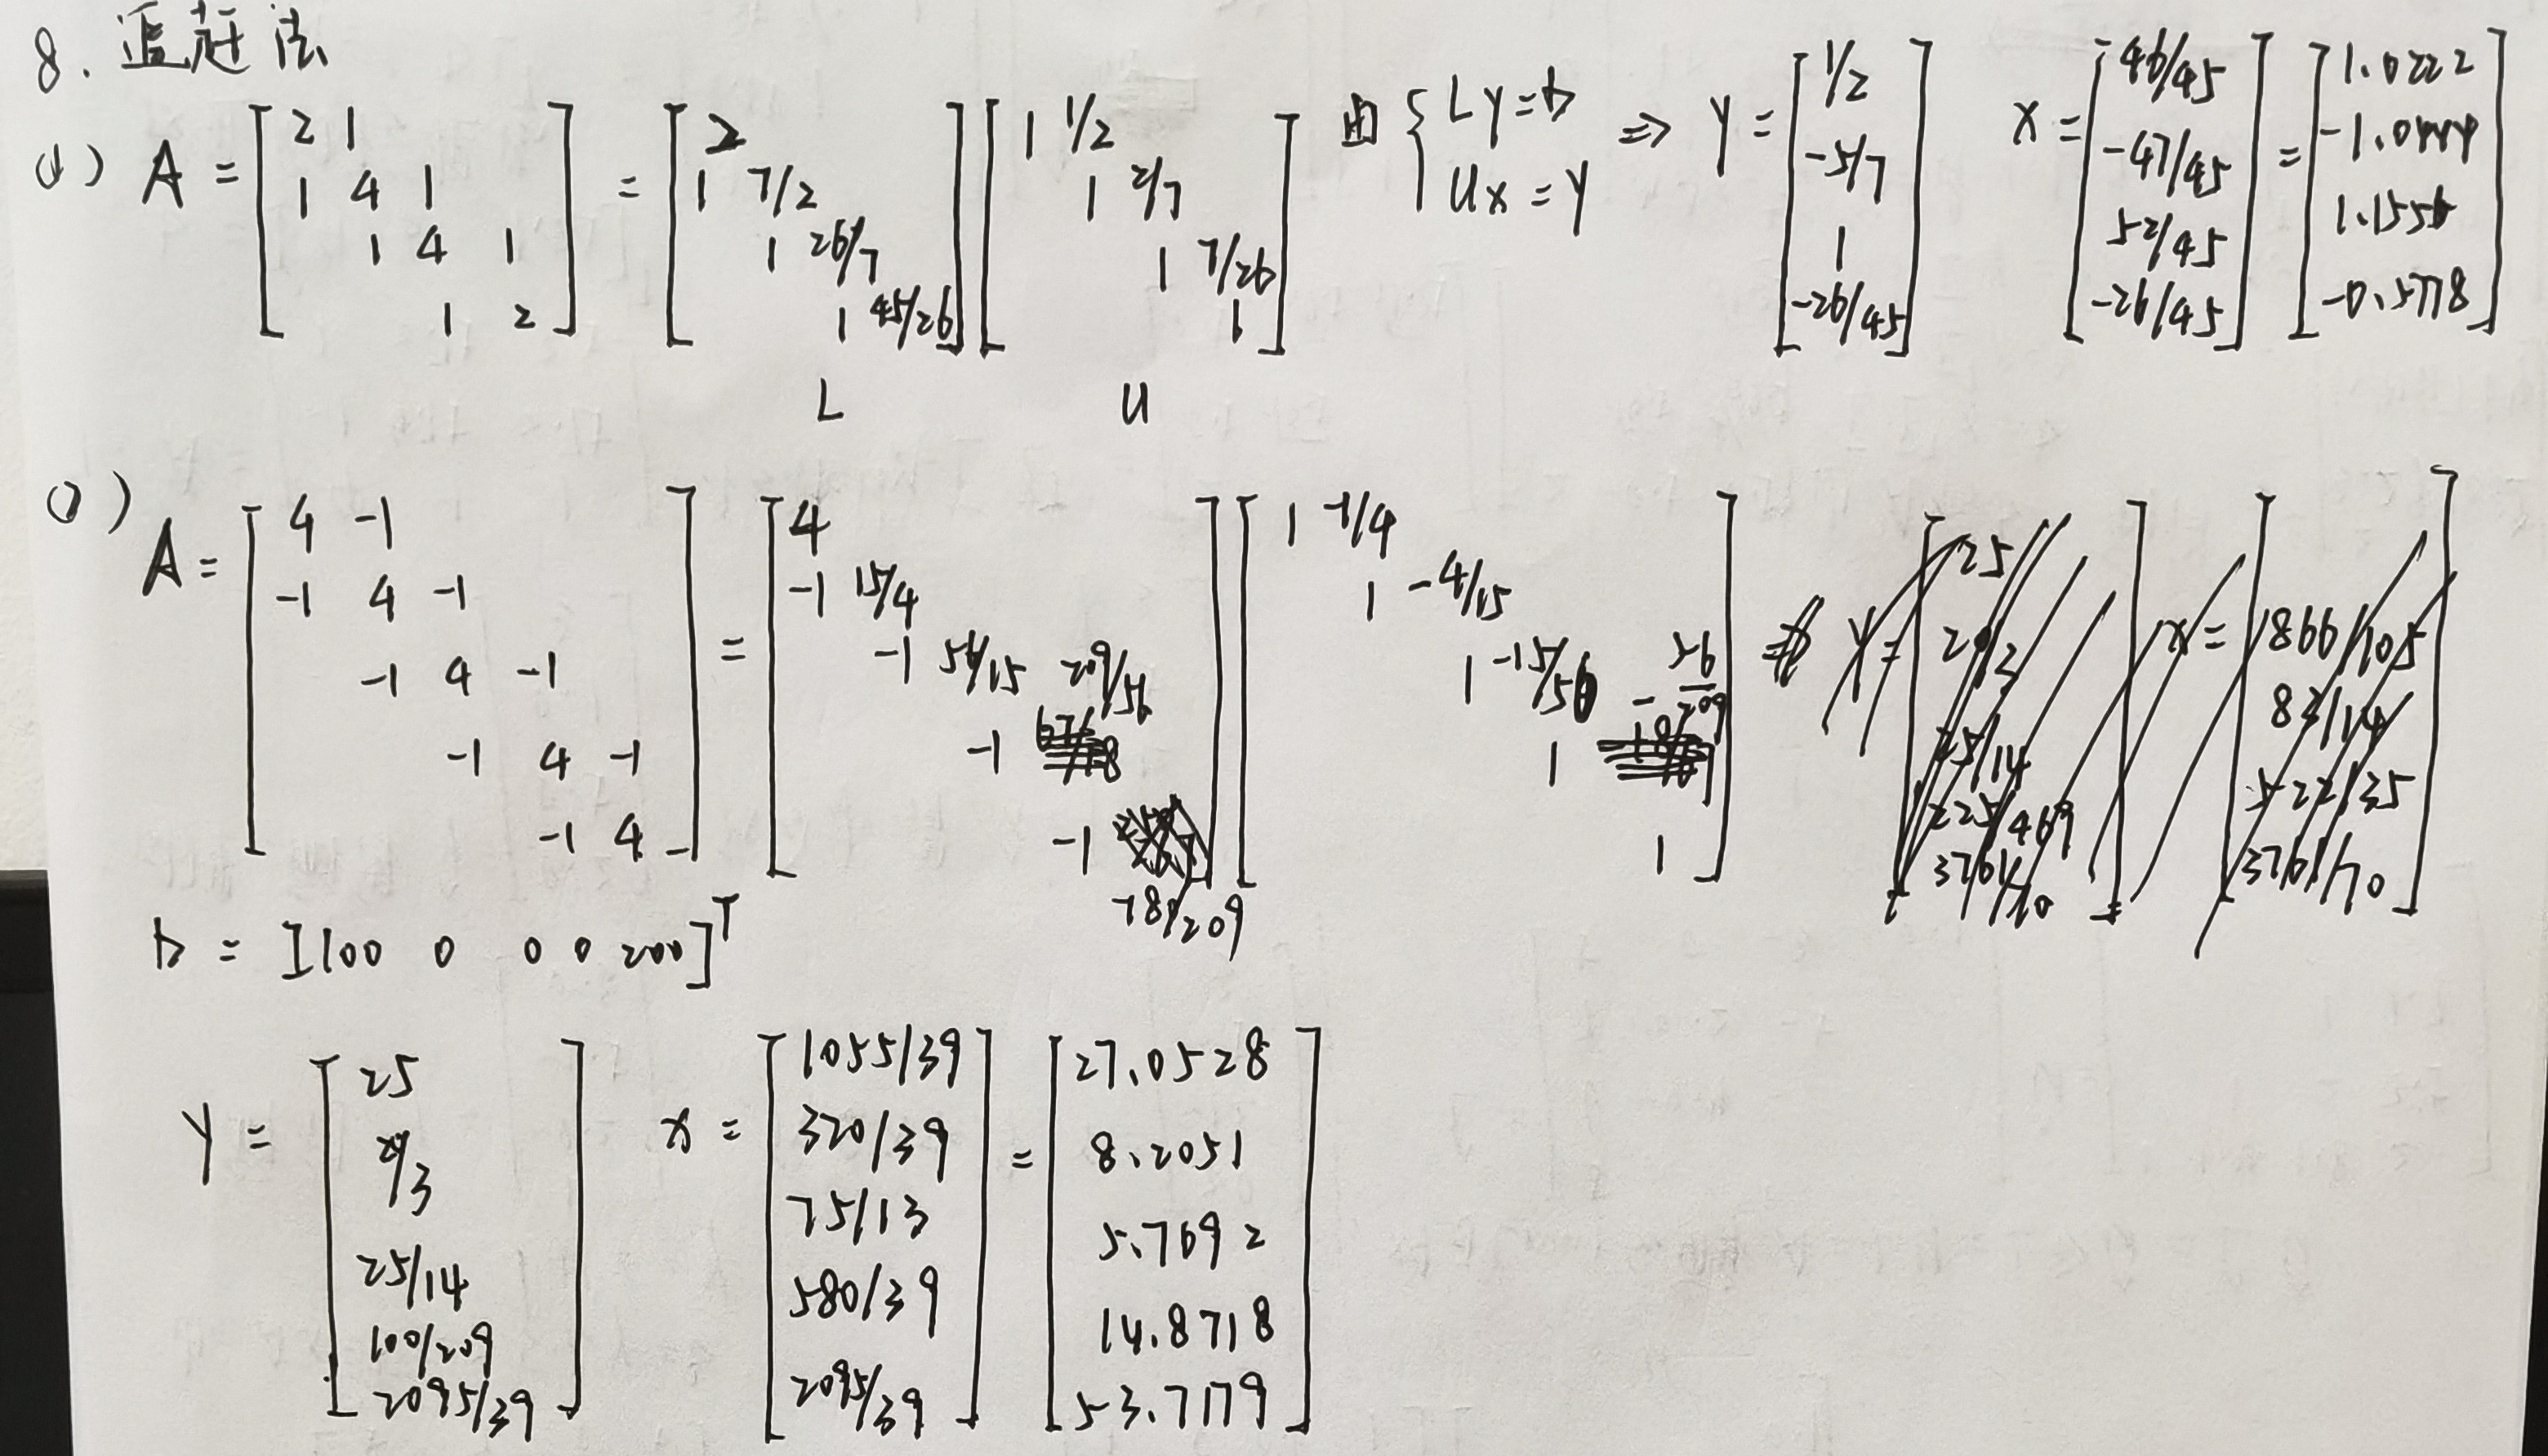 8. 追赶法
(1) A = [2 1; 1 4 1; 1 4 1; 1 2] = [2; 1 7/2; 1 26/7; 1 45/26] [1 1/2; 1 2/7; 1 7/26; 1] 由 { Ly=b Ux=y ⇒ y = [1/2; -5/7; 1; -26/45] x = [46/45; -47/45; 52/45; -26/45] = [1.0222; -1.0444; 1.1556; -0.5778]
L U
(2) A = [4 -1; -1 4 -1; -1 4 -1; -1 4 -1; -1 4] = [4; -1 15/4; -1 56/15; -1 209/56; -1 780/209] [1 -1/4; 1 -4/15; 1 -15/56; 1 -56/209; 1]
b = [100 0 0 0 200]T
y = [25; 20/3; 25/14; 100/209; 2095/39] x = [1055/39; 320/39; 75/13; 580/39; 2095/39] = [27.0528; 8.2051; 5.7692; 14.8718; 53.7179]